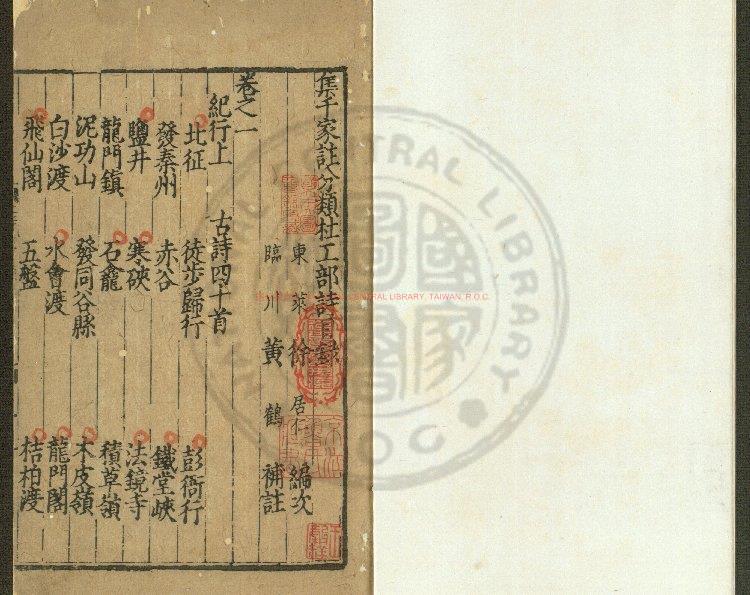 集千家註分類杜工部詩目錄
東萊徐居仁編次
臨川黃鶴補註
卷之一
紀行上 古詩四十首
北征 徒步歸行 彭衙行
發秦州 赤谷 鐵堂峽
鹽井 寒硤 法鏡寺
龍門鎮 石龕 積草嶺
泥功山 發同谷縣 木皮嶺
白沙渡 水會渡 龍門閣
飛仙閣 五盤 桔柏渡
CENTRAL LIBRARY, TAIWAN, R.O.C.
NATIONAL CENTRAL LIBRARY
ROC